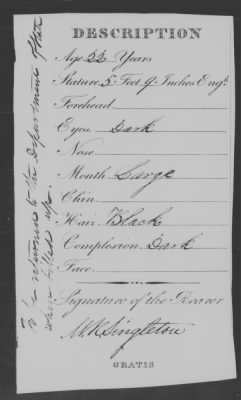 DESCRIPTION
Age 22 Years
Stature 5 Feet 9 Inches Eng.
Forehead
Eyes Dark
Nose
Mouth Large
Chin
Hair Black
Complexion Dark
Face
Signature of the Bearer
M.K. Singleton
GRATIS
To be returned to the Department after
when filled up.